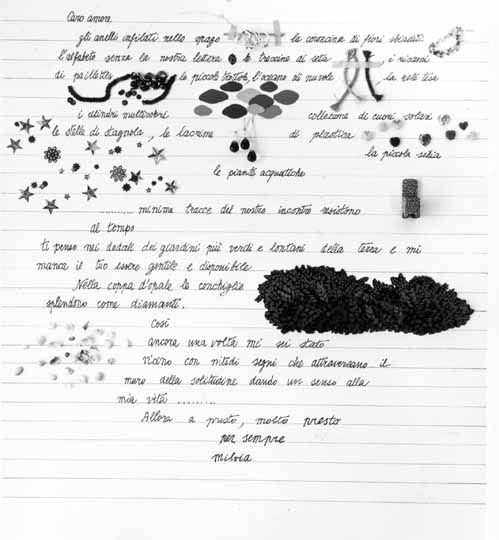 Caro amore
gli anelli infilati nello spago la coroncina di fiori sbiaditi
l'alfabeto senza la nostra lettera le treccine di seta, i ricami
di paillettes le piccole trottole, l'oceano di nuvole la rete tesa
i cilindri multicolori collezione di cuori solari
le stelle di stagnola, le lacrime di plastica
la piccola sedia
le piante acquatiche
.......... minime tracce del nostro incontro resistono
al tempo
ti penso nei dedali dei giardini più verdi e lontani della terra e mi
manca il tuo essere gentile e disponibile
Nella coppa d'opale le conchiglie
splendono come diamanti.
Così
ancora una volta mi sei stato
vicino con nitidi segni che attraversano il
muro della solitudine dando un senso alla
mia vita ..........
Allora a presto, molto presto
per sempre
milvia